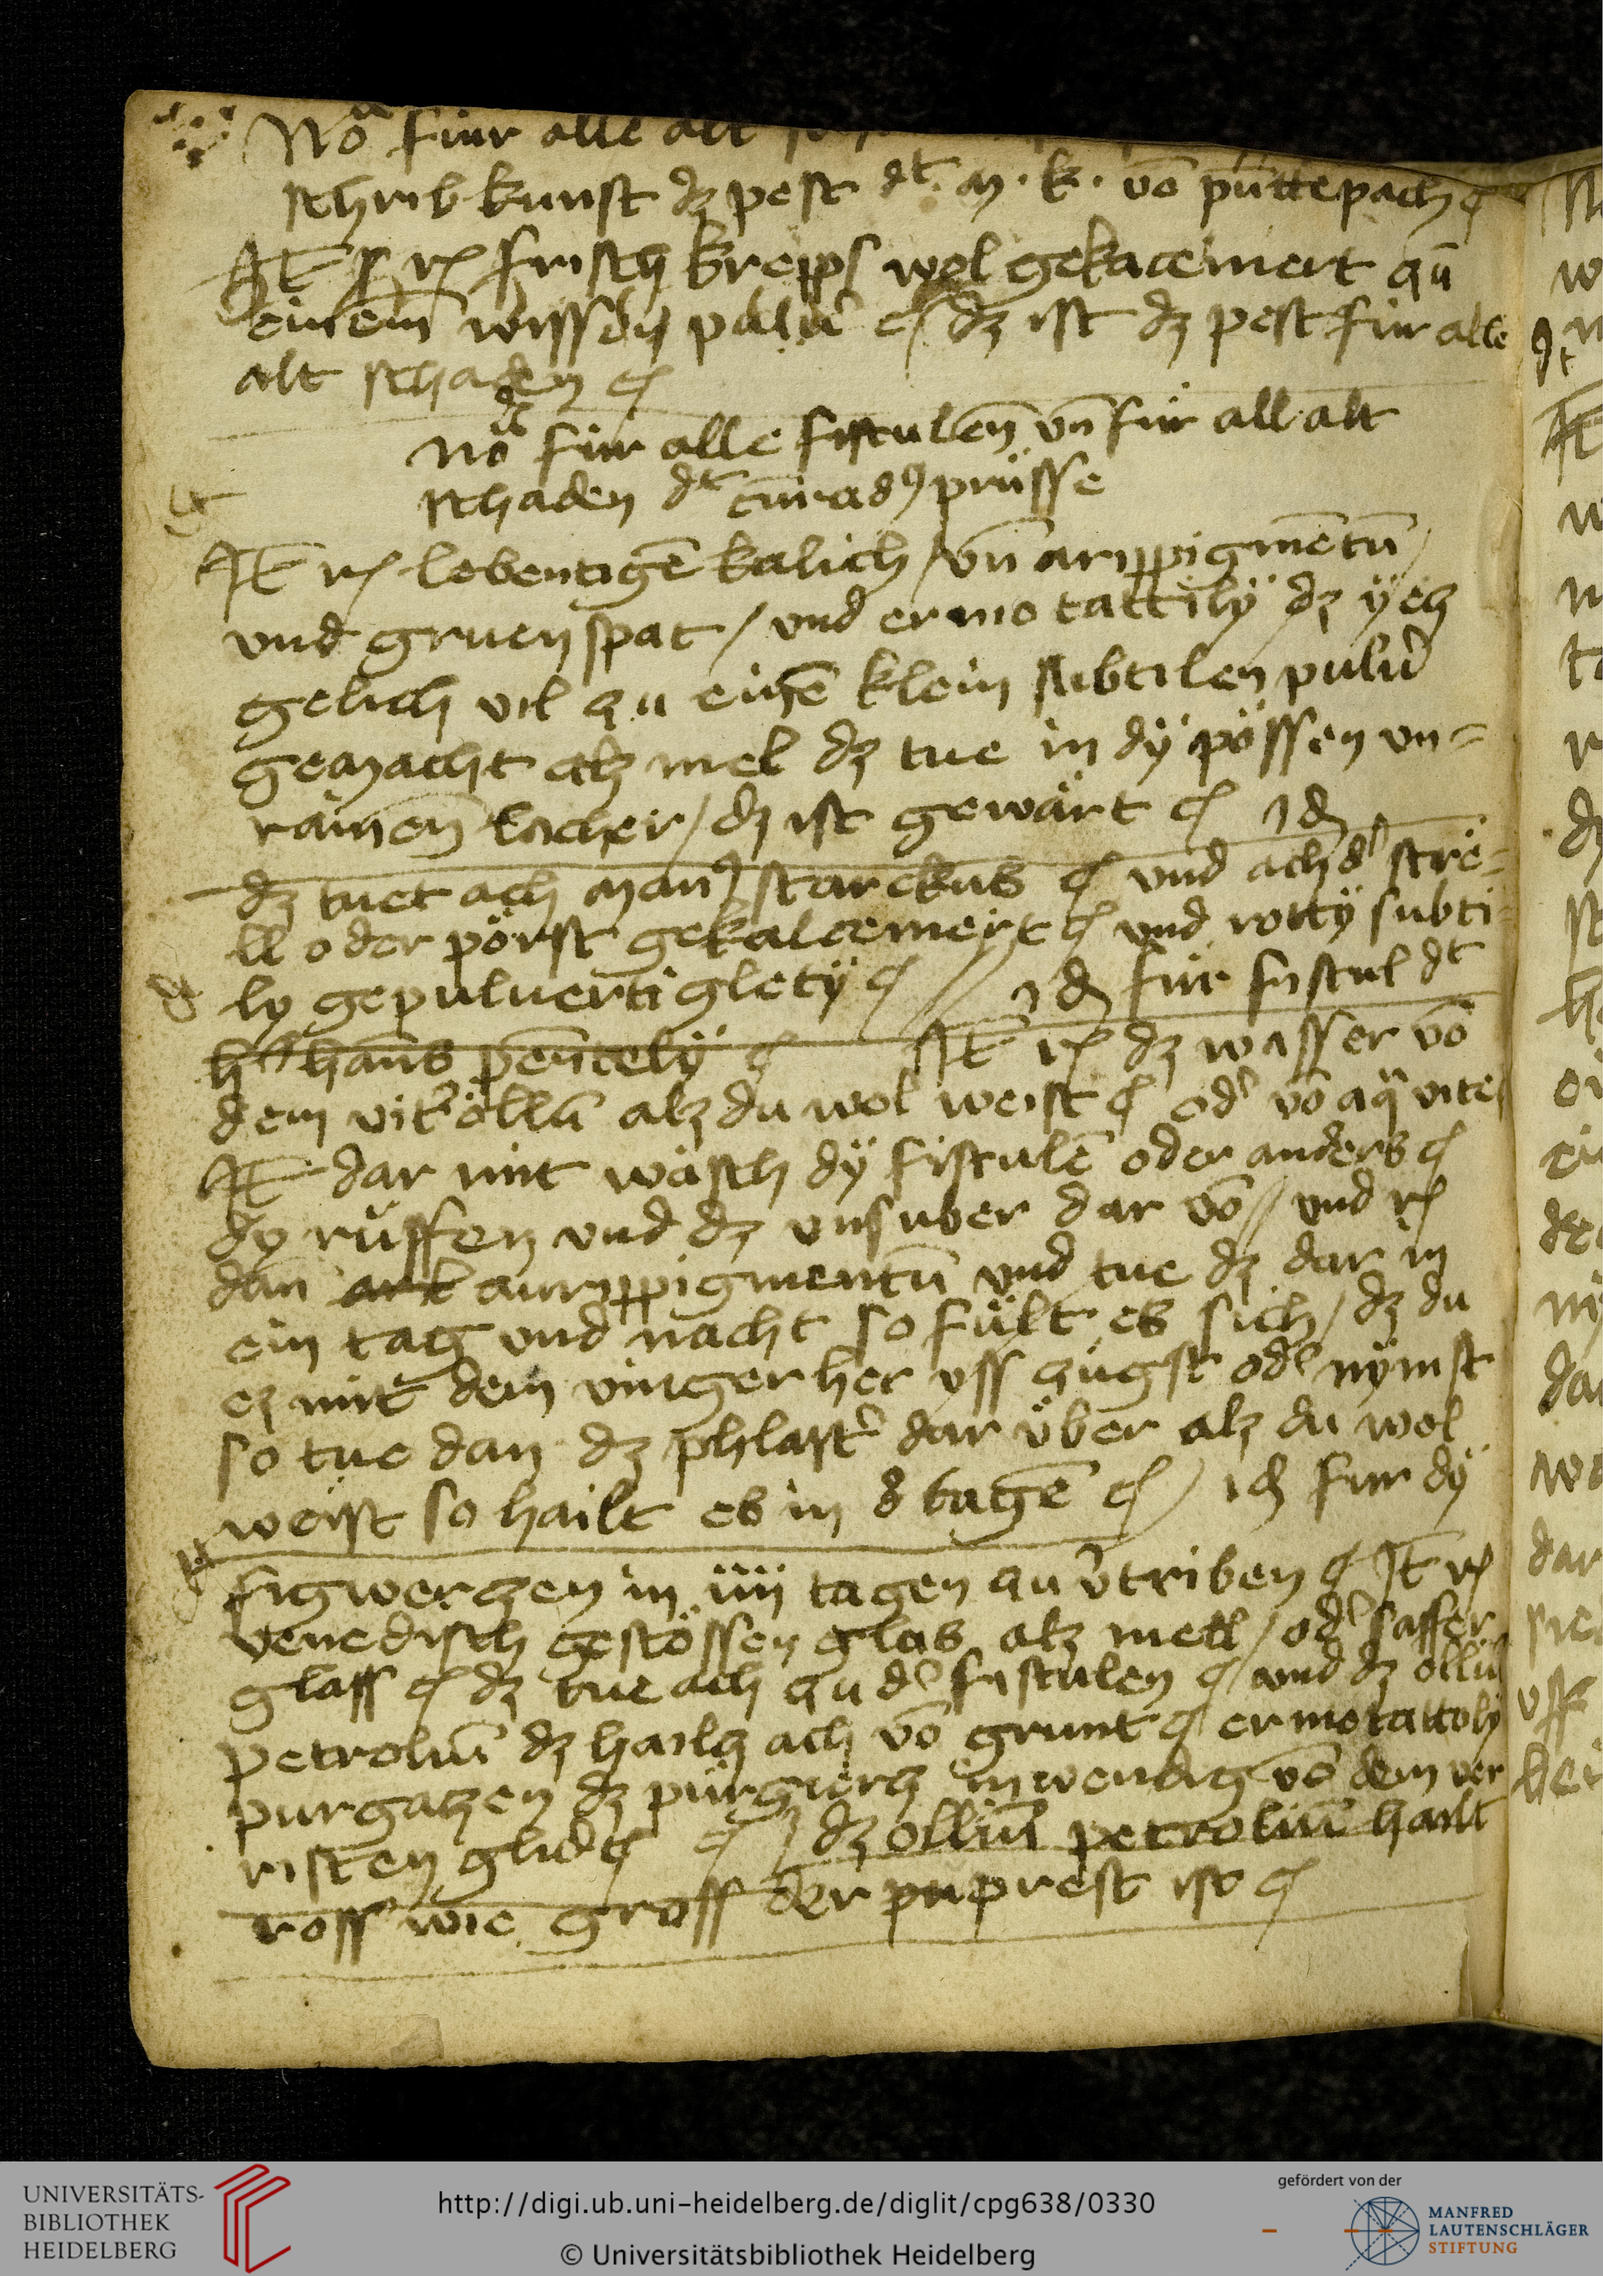 Noᵃ fiur alle alt
schrib kunst dz pest dt · m · k · vō püttepach
Jt̄ ꝶ frisch krepps wol gekacemert zu
einem̄ wissen puluˀ dz ist dz pest fiur alle
alt schaden
Noᵃ fiur alle fistulen̄ vn̄ fiur all alt
schaden dt cūradꝰ prüsse
Jt̄ ꝶ lebentigē kalich / vn̄ arippigmētū /
vnd gruenspat / vnd ermotattilÿ dz ÿetz
gelich vil zu einē klein subtilen puluˀ
gemacht alz mel dz tue in dÿ pössen vn=
rainen̄ locher / dz ist gewärt id
dz tuet ach manꝰ starckus vnd ach dˀ stre=
ll oder pörst gekalcemert vnd rotty subti=
ly gepuluerti gletÿ // id fiur fistul dt
h hans pentelÿ Jt̄ ꝶ dz wasser vō
dem vitˀöllū alz du wol weist odˀ vō aq̄ vite
Jt̄ dar mit wäsch dÿ fistulē oder anders
dy rüffen vnd dz vnsuber dar vō / vnd ꝶ
dan art aurippigmentū vnd tue dz dar in
ein tag vnd nacht so fült es sich / dz du
ez mit dem vinger her vss zügst odˀ nÿmst
so tue dan dz phlastˀ dar über alz du wol
weist so hailt es in 8 tagē / id fiur dÿ
figwerczen in iiij tagen zu vˀtriben Jt̄ ꝶ
venedisch gestössen glas alz mell / odˀ saffer
glass dz tue ach zu dˀ fistulen / vnd dz olliū
petroliū dz hailz ach vō grunt ermotattoly
purgatzen dz pürgierz inwendig vō dem ver
risten glid // dz olliū petroliū hailt
ross wie gross der pu prest ist
UNIVERSITÄTS-
BIBLIOTHEK
HEIDELBERG
http://digi.ub.uni-heidelberg.de/diglit/cpg638/0330
© Universitätsbibliothek Heidelberg
gefördert von der
MANFRED
LAUTENSCHLÄGER
STIFTUNG